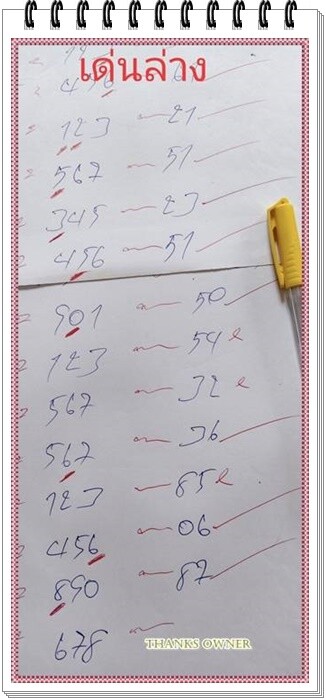 เด่นล่าง
456 61
123 — 21
567 — 51
345 — 23
456 — 51
901 — 50
123 — 54 e
567 — 32 e
567 — 36
123 — 85 e
456 — 06
890 — 87
678 —
THANKS OWNER